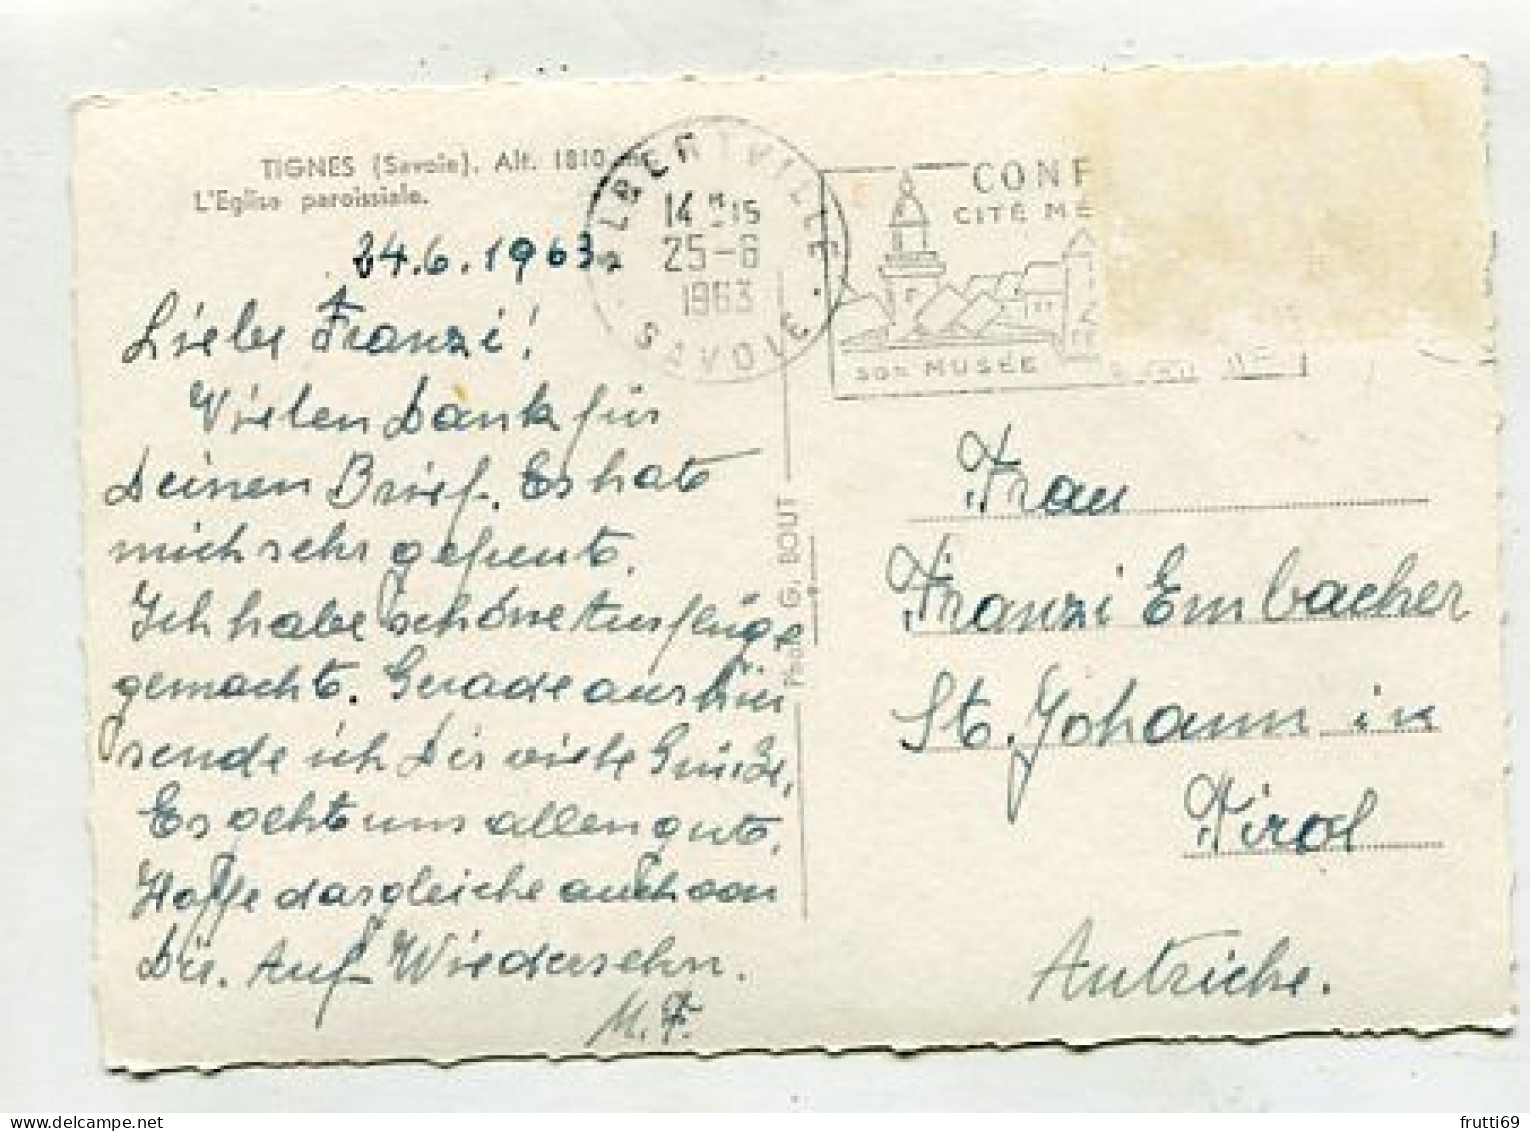 TIGNES (Savoie). Alt. 1810 m.
L'Eglise paroissiale.
24.6.1963.
Liebe Franzi!
Vielen Dank für
Deinen Brief. Es hat
mich sehr gefreut.
Ich habe schöne Ausflüge
gemacht. Gerade aus hier
sende ich Dir viele Grüße,
Es geht uns allen gut,
Hoffe dasgleiche auch von
Dir. Auf Wiedersehn.
M. F.
ALBERTVILLE
14 H15
25-6
1963
SAVOIE
CONF
CITÉ MÉ
SON MUSÉE
Photo G. BOUT
Frau
Franzi Embacher
St. Johann in
Tirol
Autriche.
frutti69